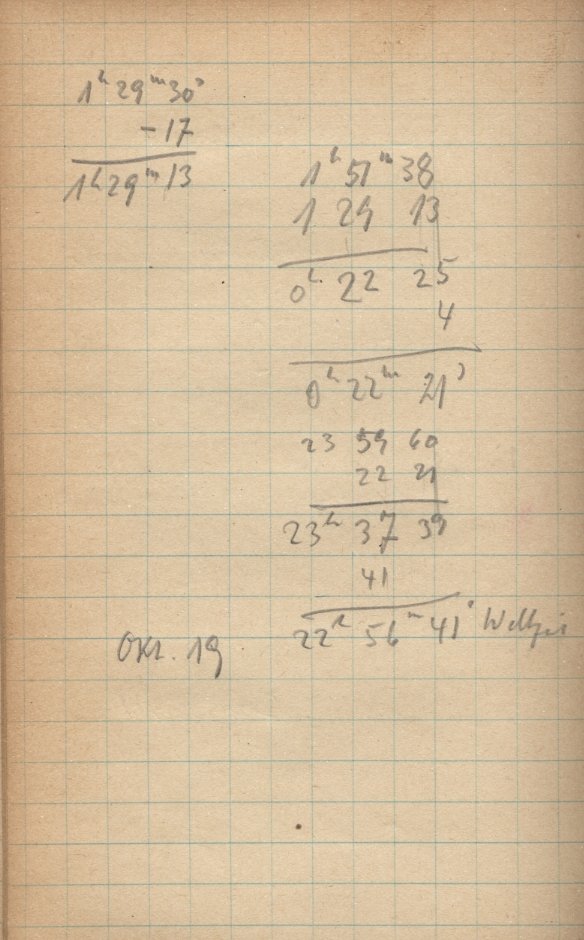 1ʰ 29ᵐ 30ˢ
- 17
1ʰ 29ᵐ 13
1ʰ 51ᵐ 38
1 29 13
0ʰ 22 25
4
0ʰ 22ᵐ 21ˢ
23 59 60
22 21
23ʰ 37 39
41
Okt. 19
22ʰ 56ᵐ 41ˢ Weltzeit